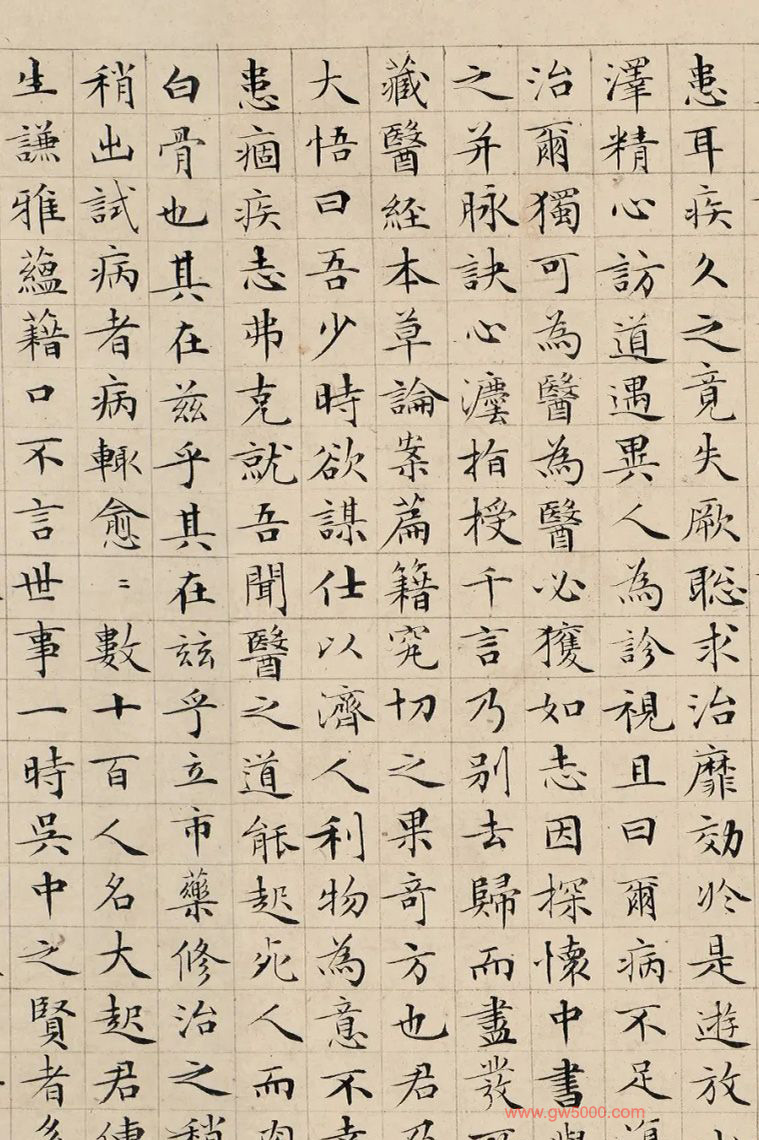 患耳疾久之竟失厥聡求治靡効於是遊放
澤精心訪道遇異人為診視且曰爾病不足
治爾獨可為醫為醫必獲如志因探懷中書
之并脉訣心灋指授千言乃别去歸而盡發
藏醫經本草論案篇籍究切之果奇方也君
大悟曰吾少時欲謀仕以濟人利物為意不
患痼疾志弗克就吾聞醫之道能起死人而
白骨也其在茲乎其在茲乎立市藥修治之
稍出試病者病輒愈〻數十百人名大起君
生謙雅蘊藉口不言世事一時吳中之賢者
www.gw5000.com